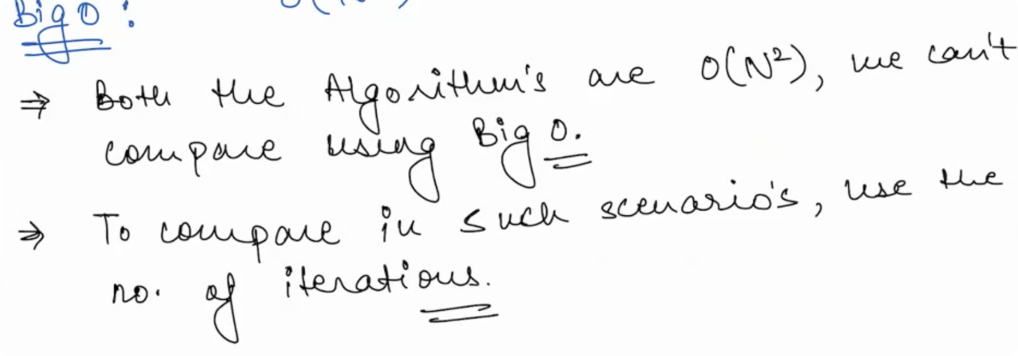 Big O :
⇒ Both the Algorithm's are O(N²), we can't
compare using Big O.
⇒ To compare in such scenario's, use the
no. of iterations.